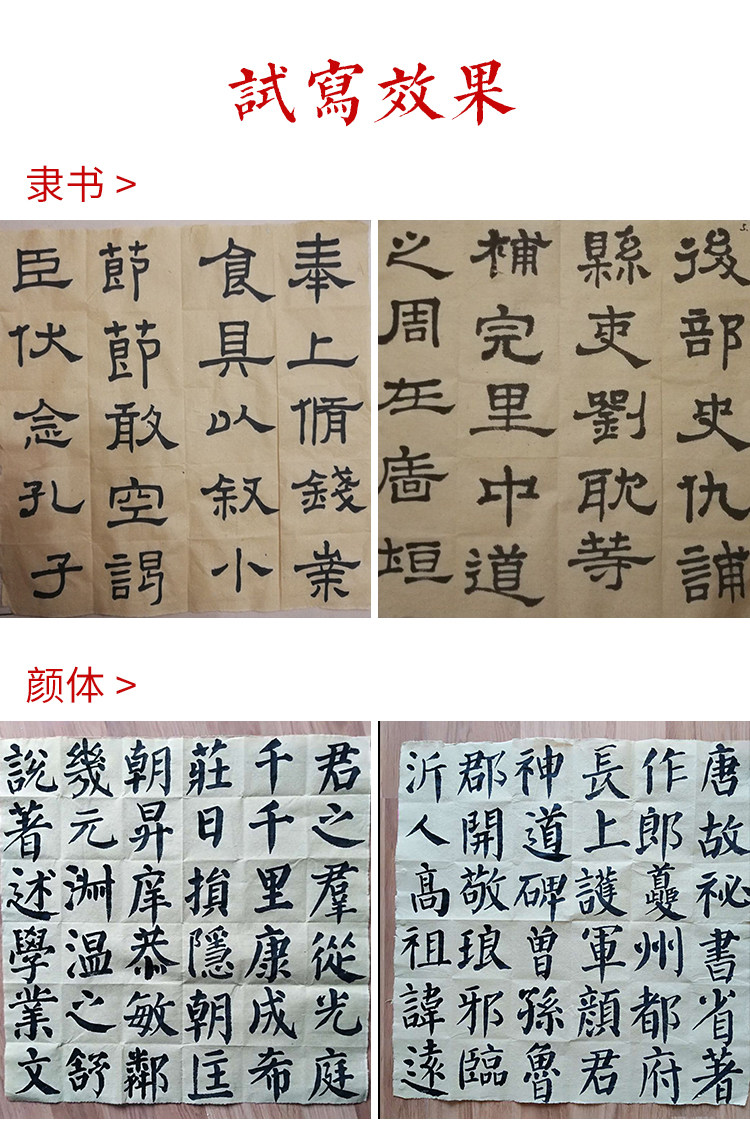 試寫效果
隶书 >
奉上脩錢
食具以叙小
莭莭敢空謁
臣伏念孔子
5.
後部史仇誧
縣吏劉耽等
補完里中道
之周左廧垣
颜体 >
君之羣從光庭
千千里康成希
莊日損隱朝匡
朝昇庠恭敏鄰
幾元淵温之舒
說著述學業文
唐故祕書省著
作郎夔州都府
長上護軍顏君
神道碑曾孫魯
郡開敬琅邪臨
沂人高祖諱遠